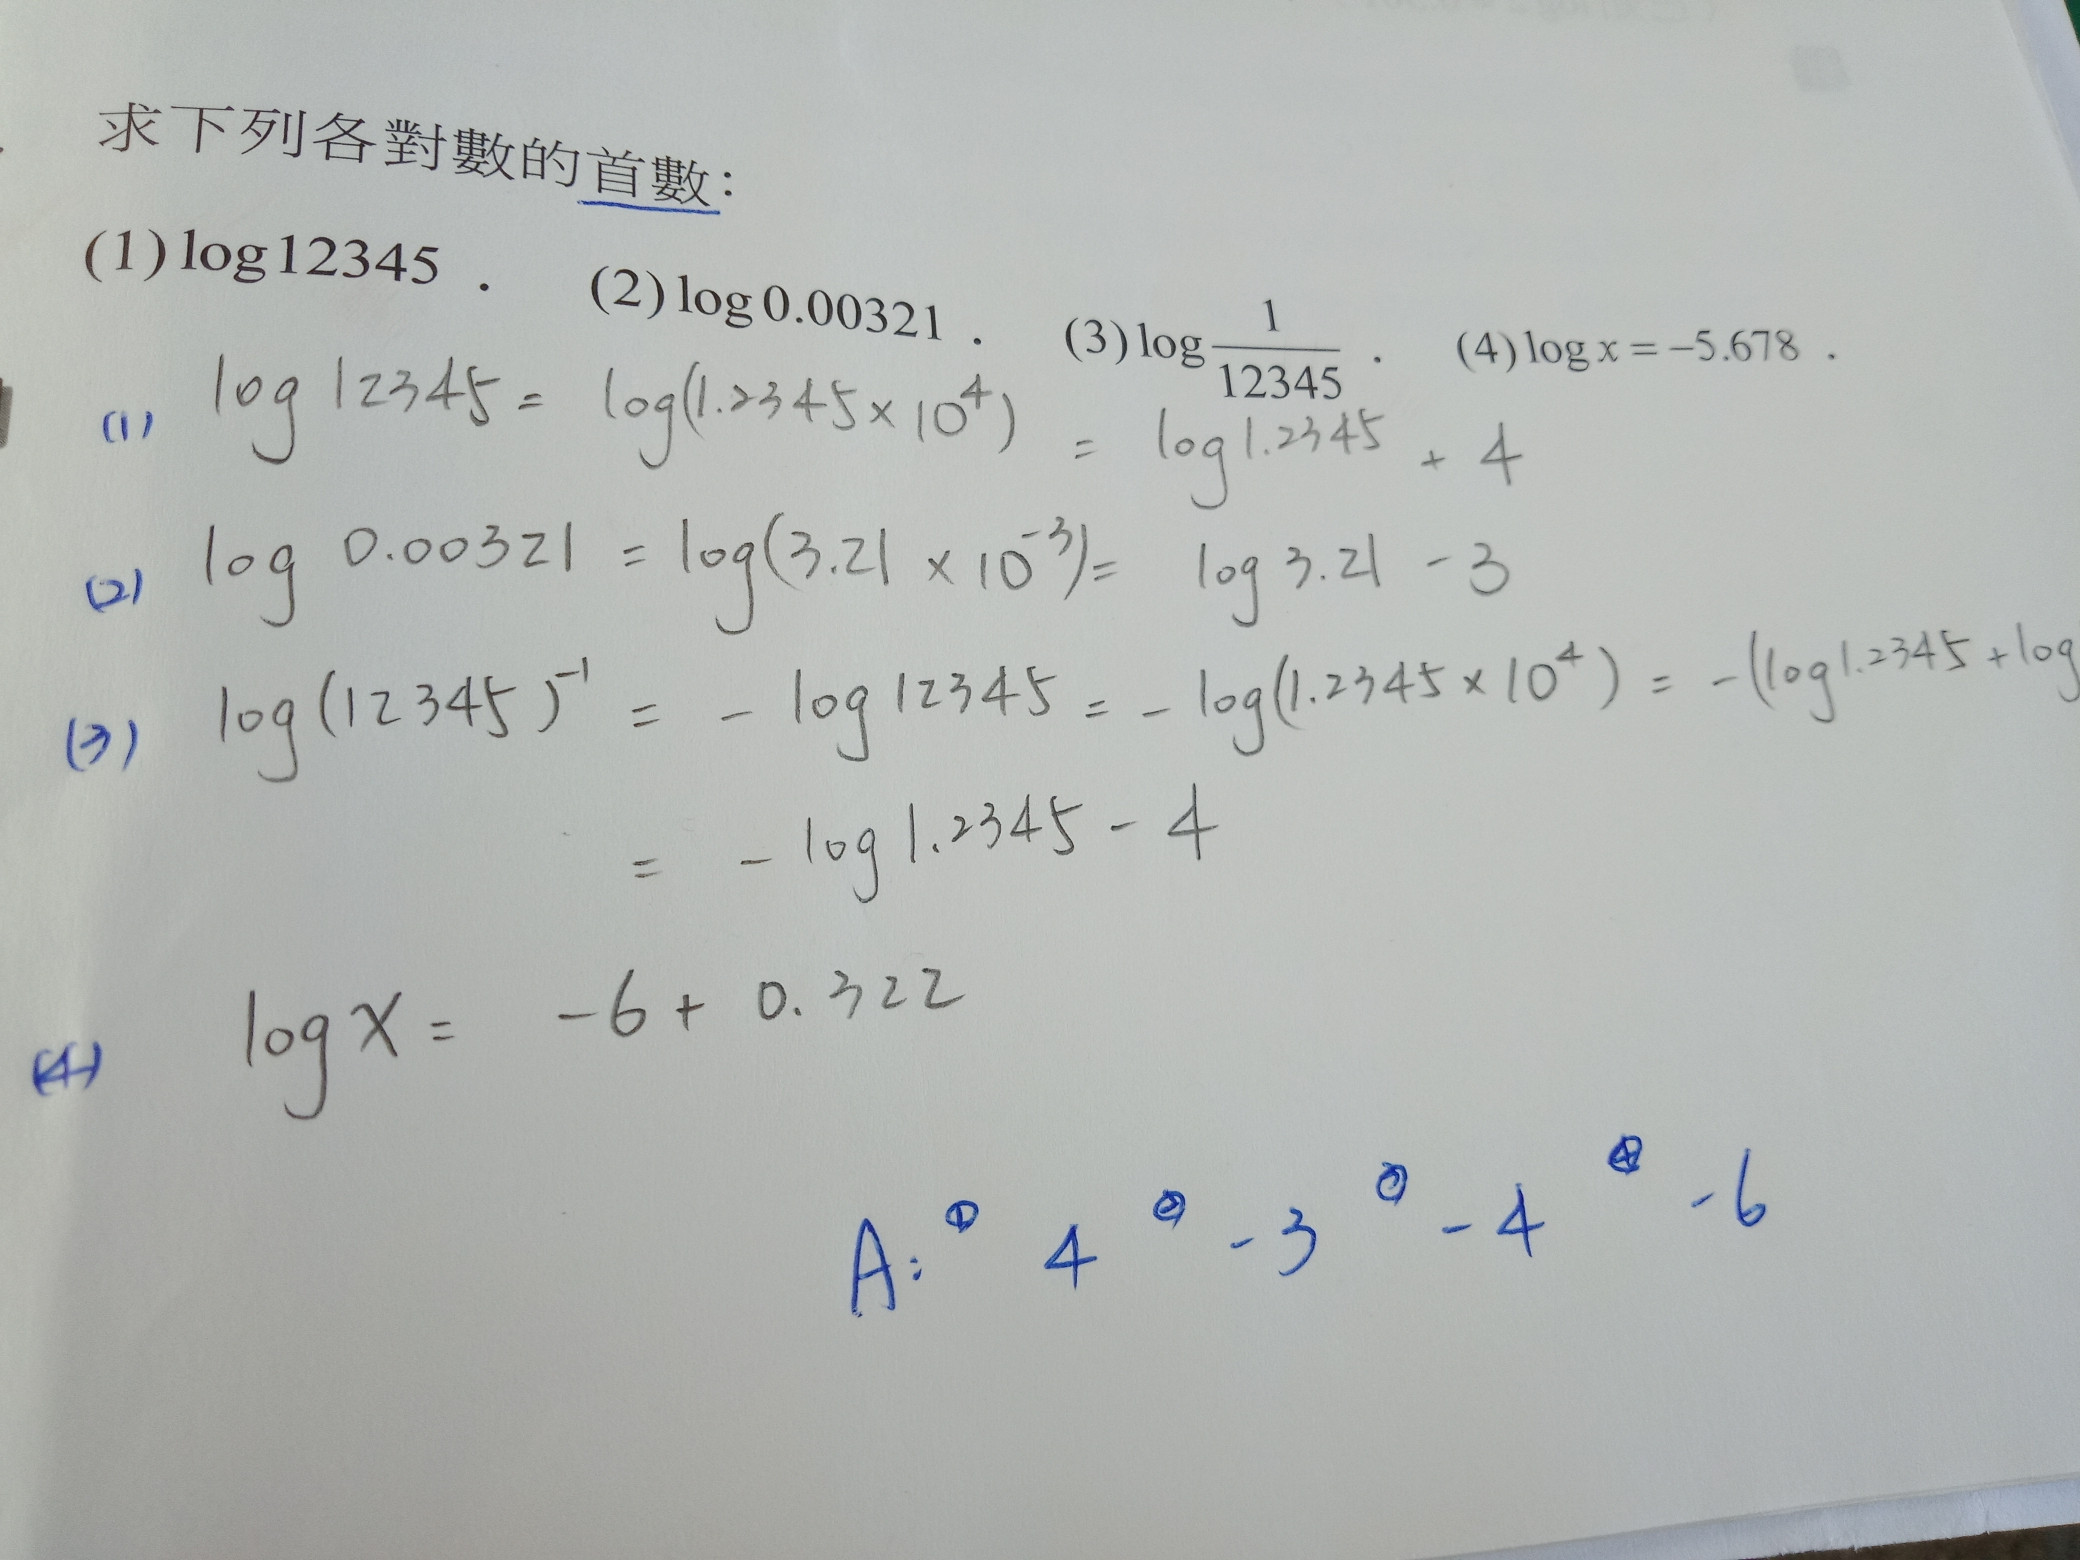 求下列各對數的首數：
(1) log 12345 . (2) log 0.00321 . (3) log 1/12345 . (4) log x = −5.678 .
(1) log 12345 = log(1.2345 × 10⁴) = log 1.2345 + 4
(2) log 0.00321 = log(3.21 × 10⁻³) = log 3.21 - 3
(3) log(12345)⁻¹ = - log 12345 = - log(1.2345 × 10⁴) = -(log 1.2345 + log
= - log 1.2345 - 4
(4) log x = -6 + 0.322
A: ① 4 ② -3 ③ -4 ④ -6